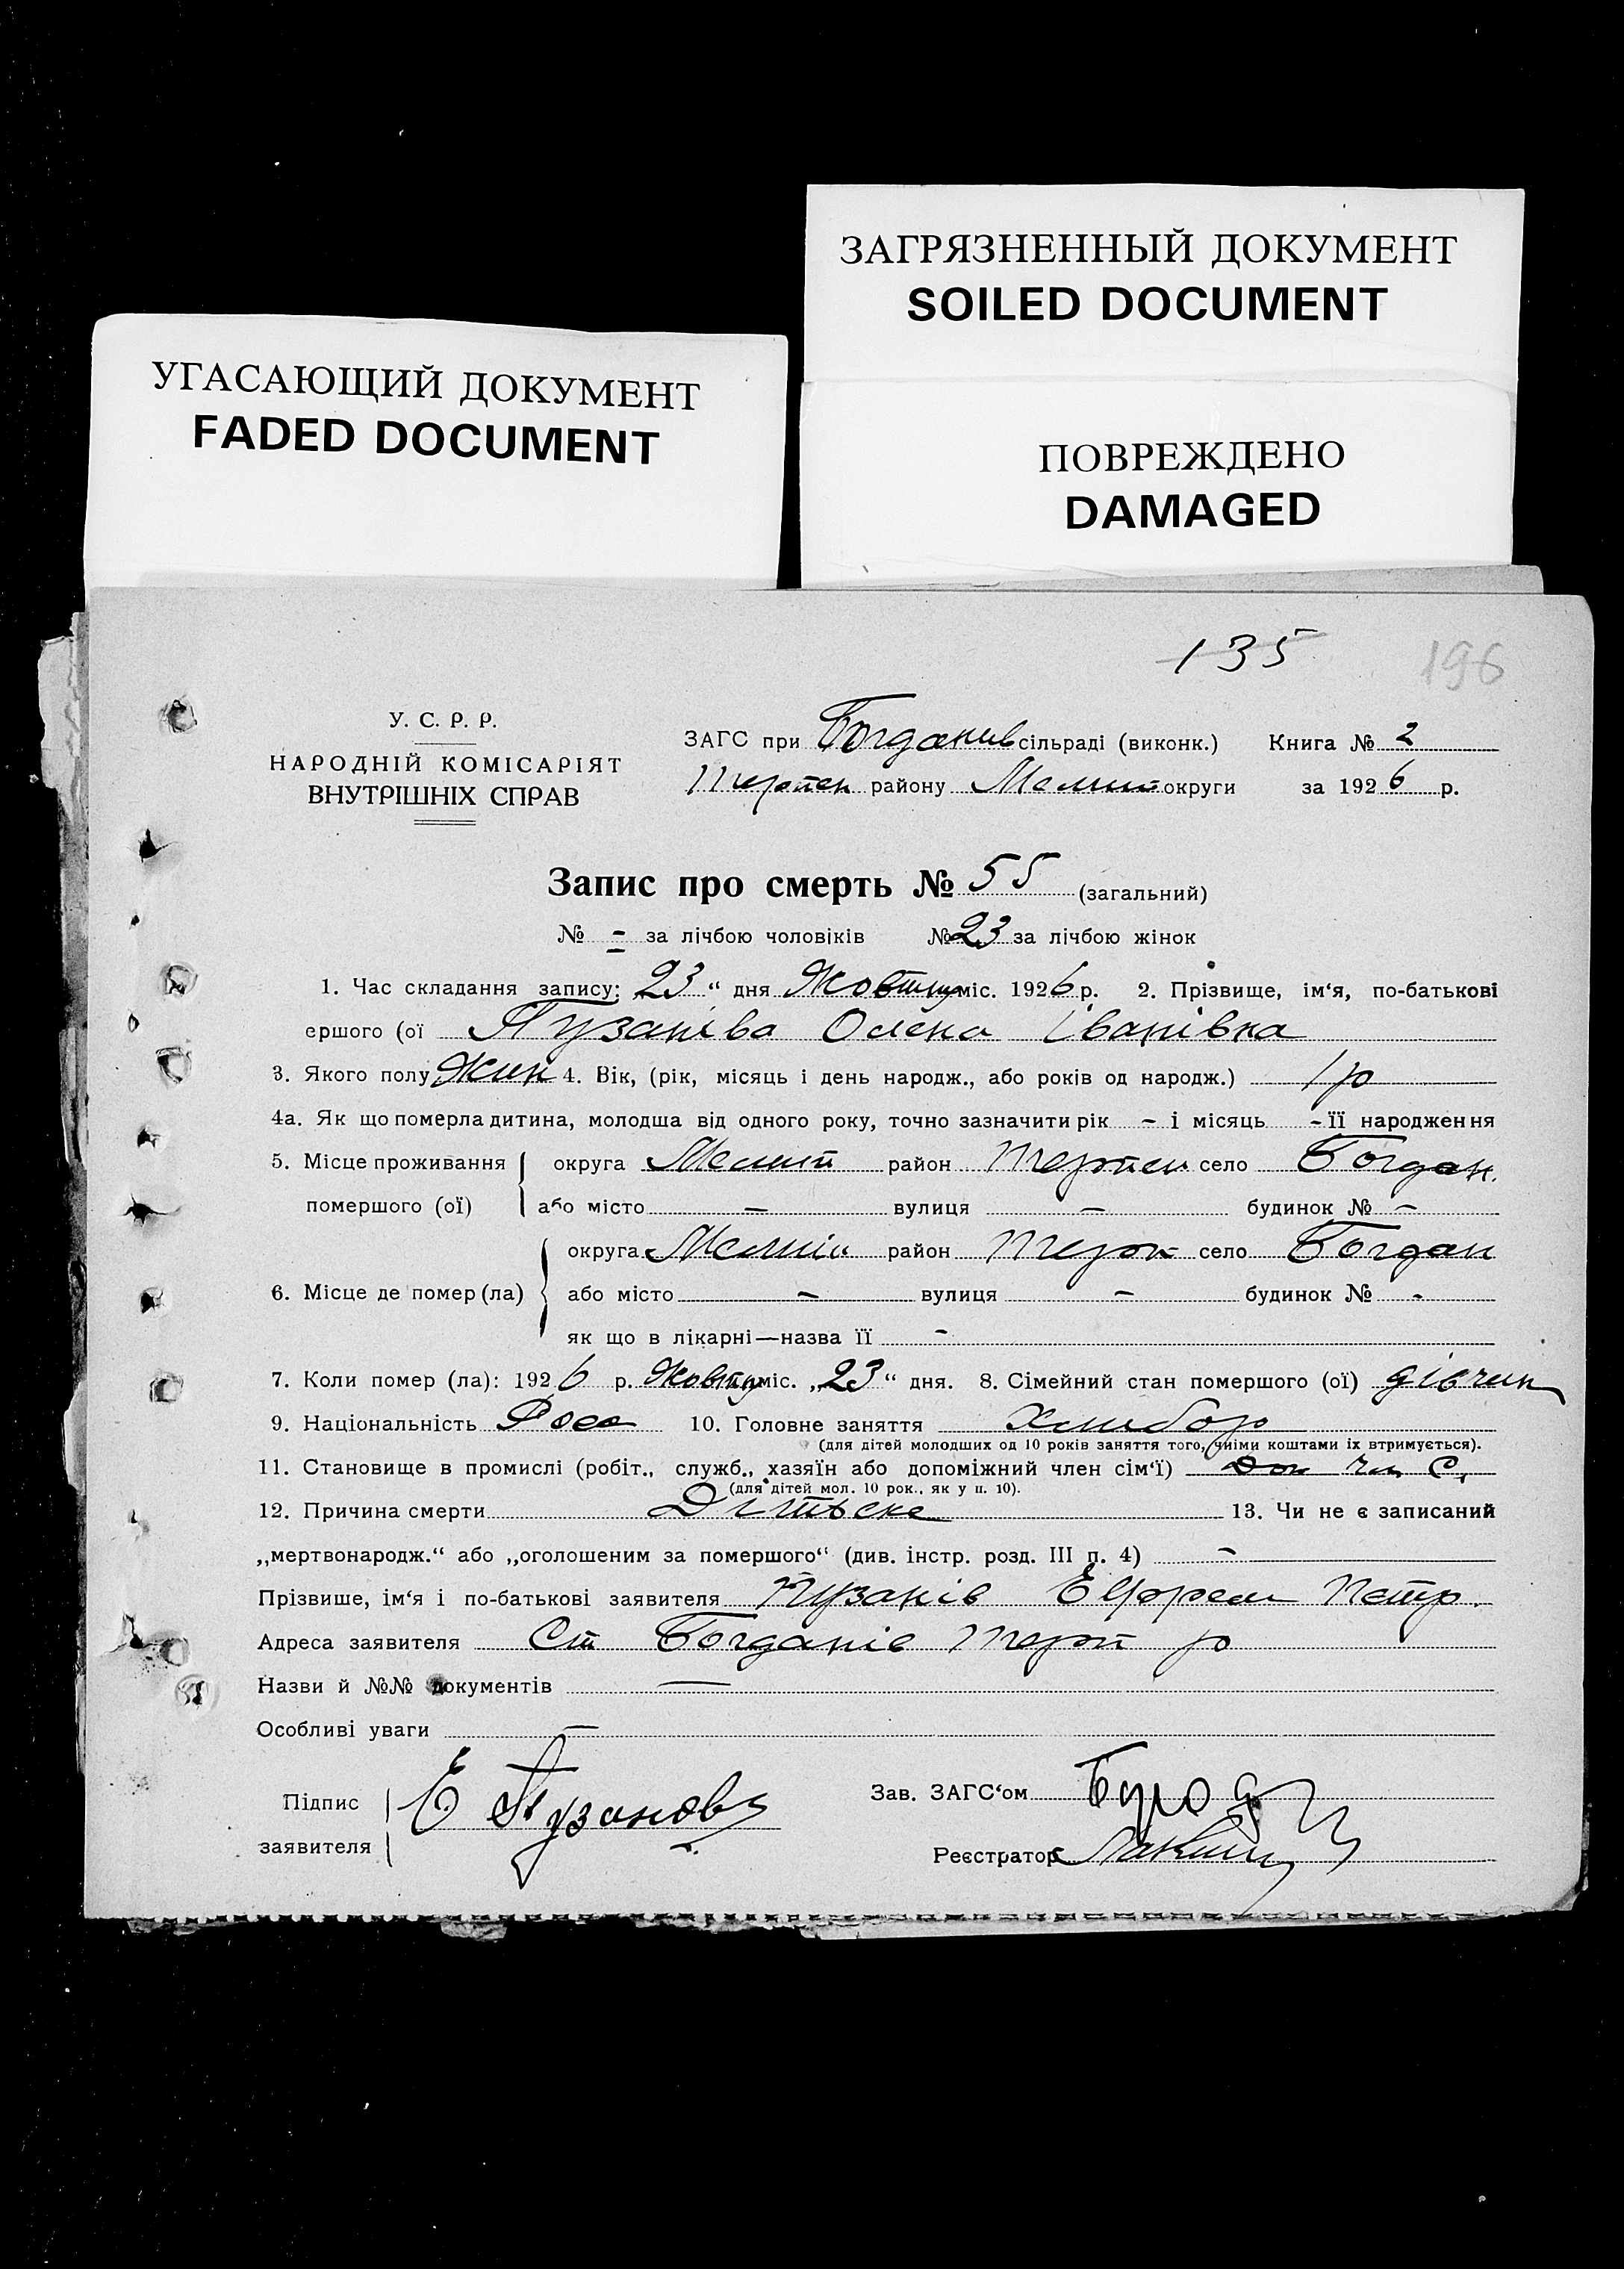 ЗАГРЯЗНЕННЫЙ ДОКУМЕНТ
SOILED DOCUMENT
УГАСАЮЩИЙ ДОКУМЕНТ
FADED DOCUMENT
ПОВРЕЖДЕНО
DAMAGED
135 196
У. С. Р. Р.
НАРОДНІЙ КОМІСАРІЯТ
ВНУТРІШНІХ СПРАВ
ЗАГС при Богданів сільраді (виконк.) Книга № 2
Терпен району Меліт округи за 1926 р.
Запис про смерть № 55 (загальний)
№ - за лічбою чоловіків № 23 за лічбою жінок
1. Час складання запису: 23 “ дня Жовтня міс. 1926 р. 2. Прізвище, ім‘я, по-батькові
ершого (ої Пузанівa Олена Іванівна
3. Якого полу Жин 4. Вік, (рік, місяць і день народж., або років од народж.) 1 р
4а. Як що померла дитина, молодша від одного року, точно зазначити рік - і місяць - її народження
5. Місце проживання округа Меліт район Терпен село Богдан.
помершого (ої) або місто — вулиця — будинок № -
округа Меліт район Терп село Богдан
6. Місце де помер (ла) або місто — вулиця — будинок № -
як що в лікарні—назва її -
7. Коли помер (ла): 1926 р. Жовтня міс. „23“ дня. 8. Сімейний стан помершого (ої) дівчин
9. Національність Росс 10. Головне заняття Хлибор
(для дітей молодших од 10 років заняття того, чиїми коштами їх втримується).
11. Становище в промислі (робіт., служб., хазяїн або допоміжний член сім‘ї) Доп чл С,
(для дітей мол. 10 рок., як у п. 10).
12. Причина смерти Дитьске 13. Чи не є записаний
„мертвонародж.“ або „оголошеним за помершого“ (див. інстр. розд. III п. 4) -
Прізвише, ім‘я і по-батькові заявителя Пузанів Ефрем Петр.
Адреса заявителя Ст Богданів Терп р
Назви й №№ документів —
Особливі уваги —
Підпис
заявителя
Е Пузановъ
Зав. ЗАГС‘ом
Реєстратор